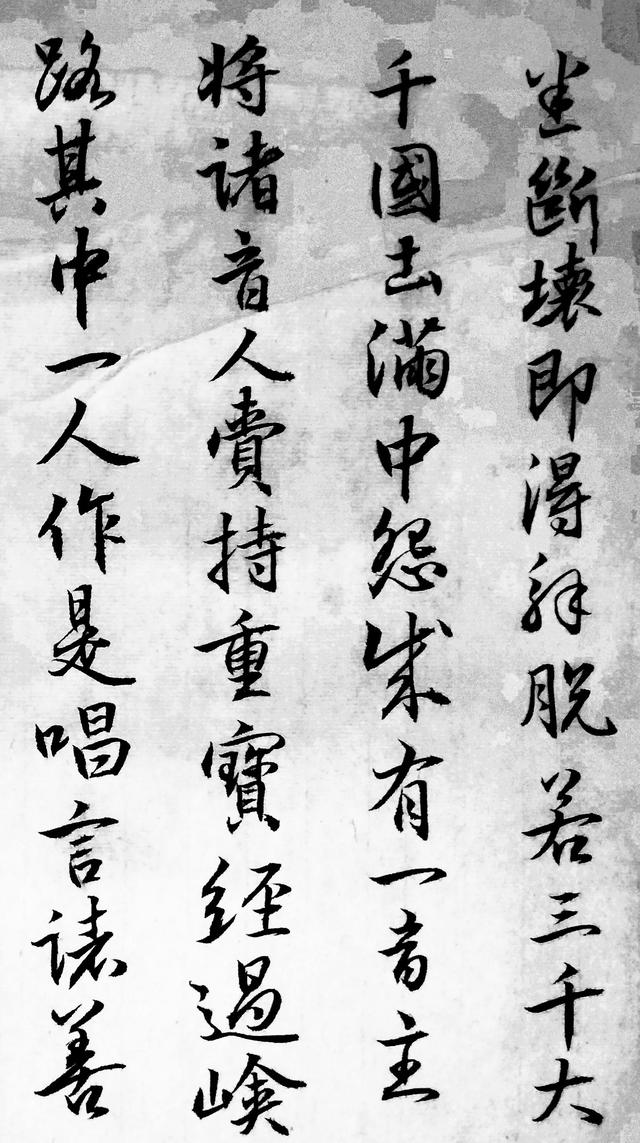 悉斷壞即得解脫若三千大
千國土滿中怨賊有一商主
將諸商人齎持重寶經過嶮
路其中一人作是唱言諸善